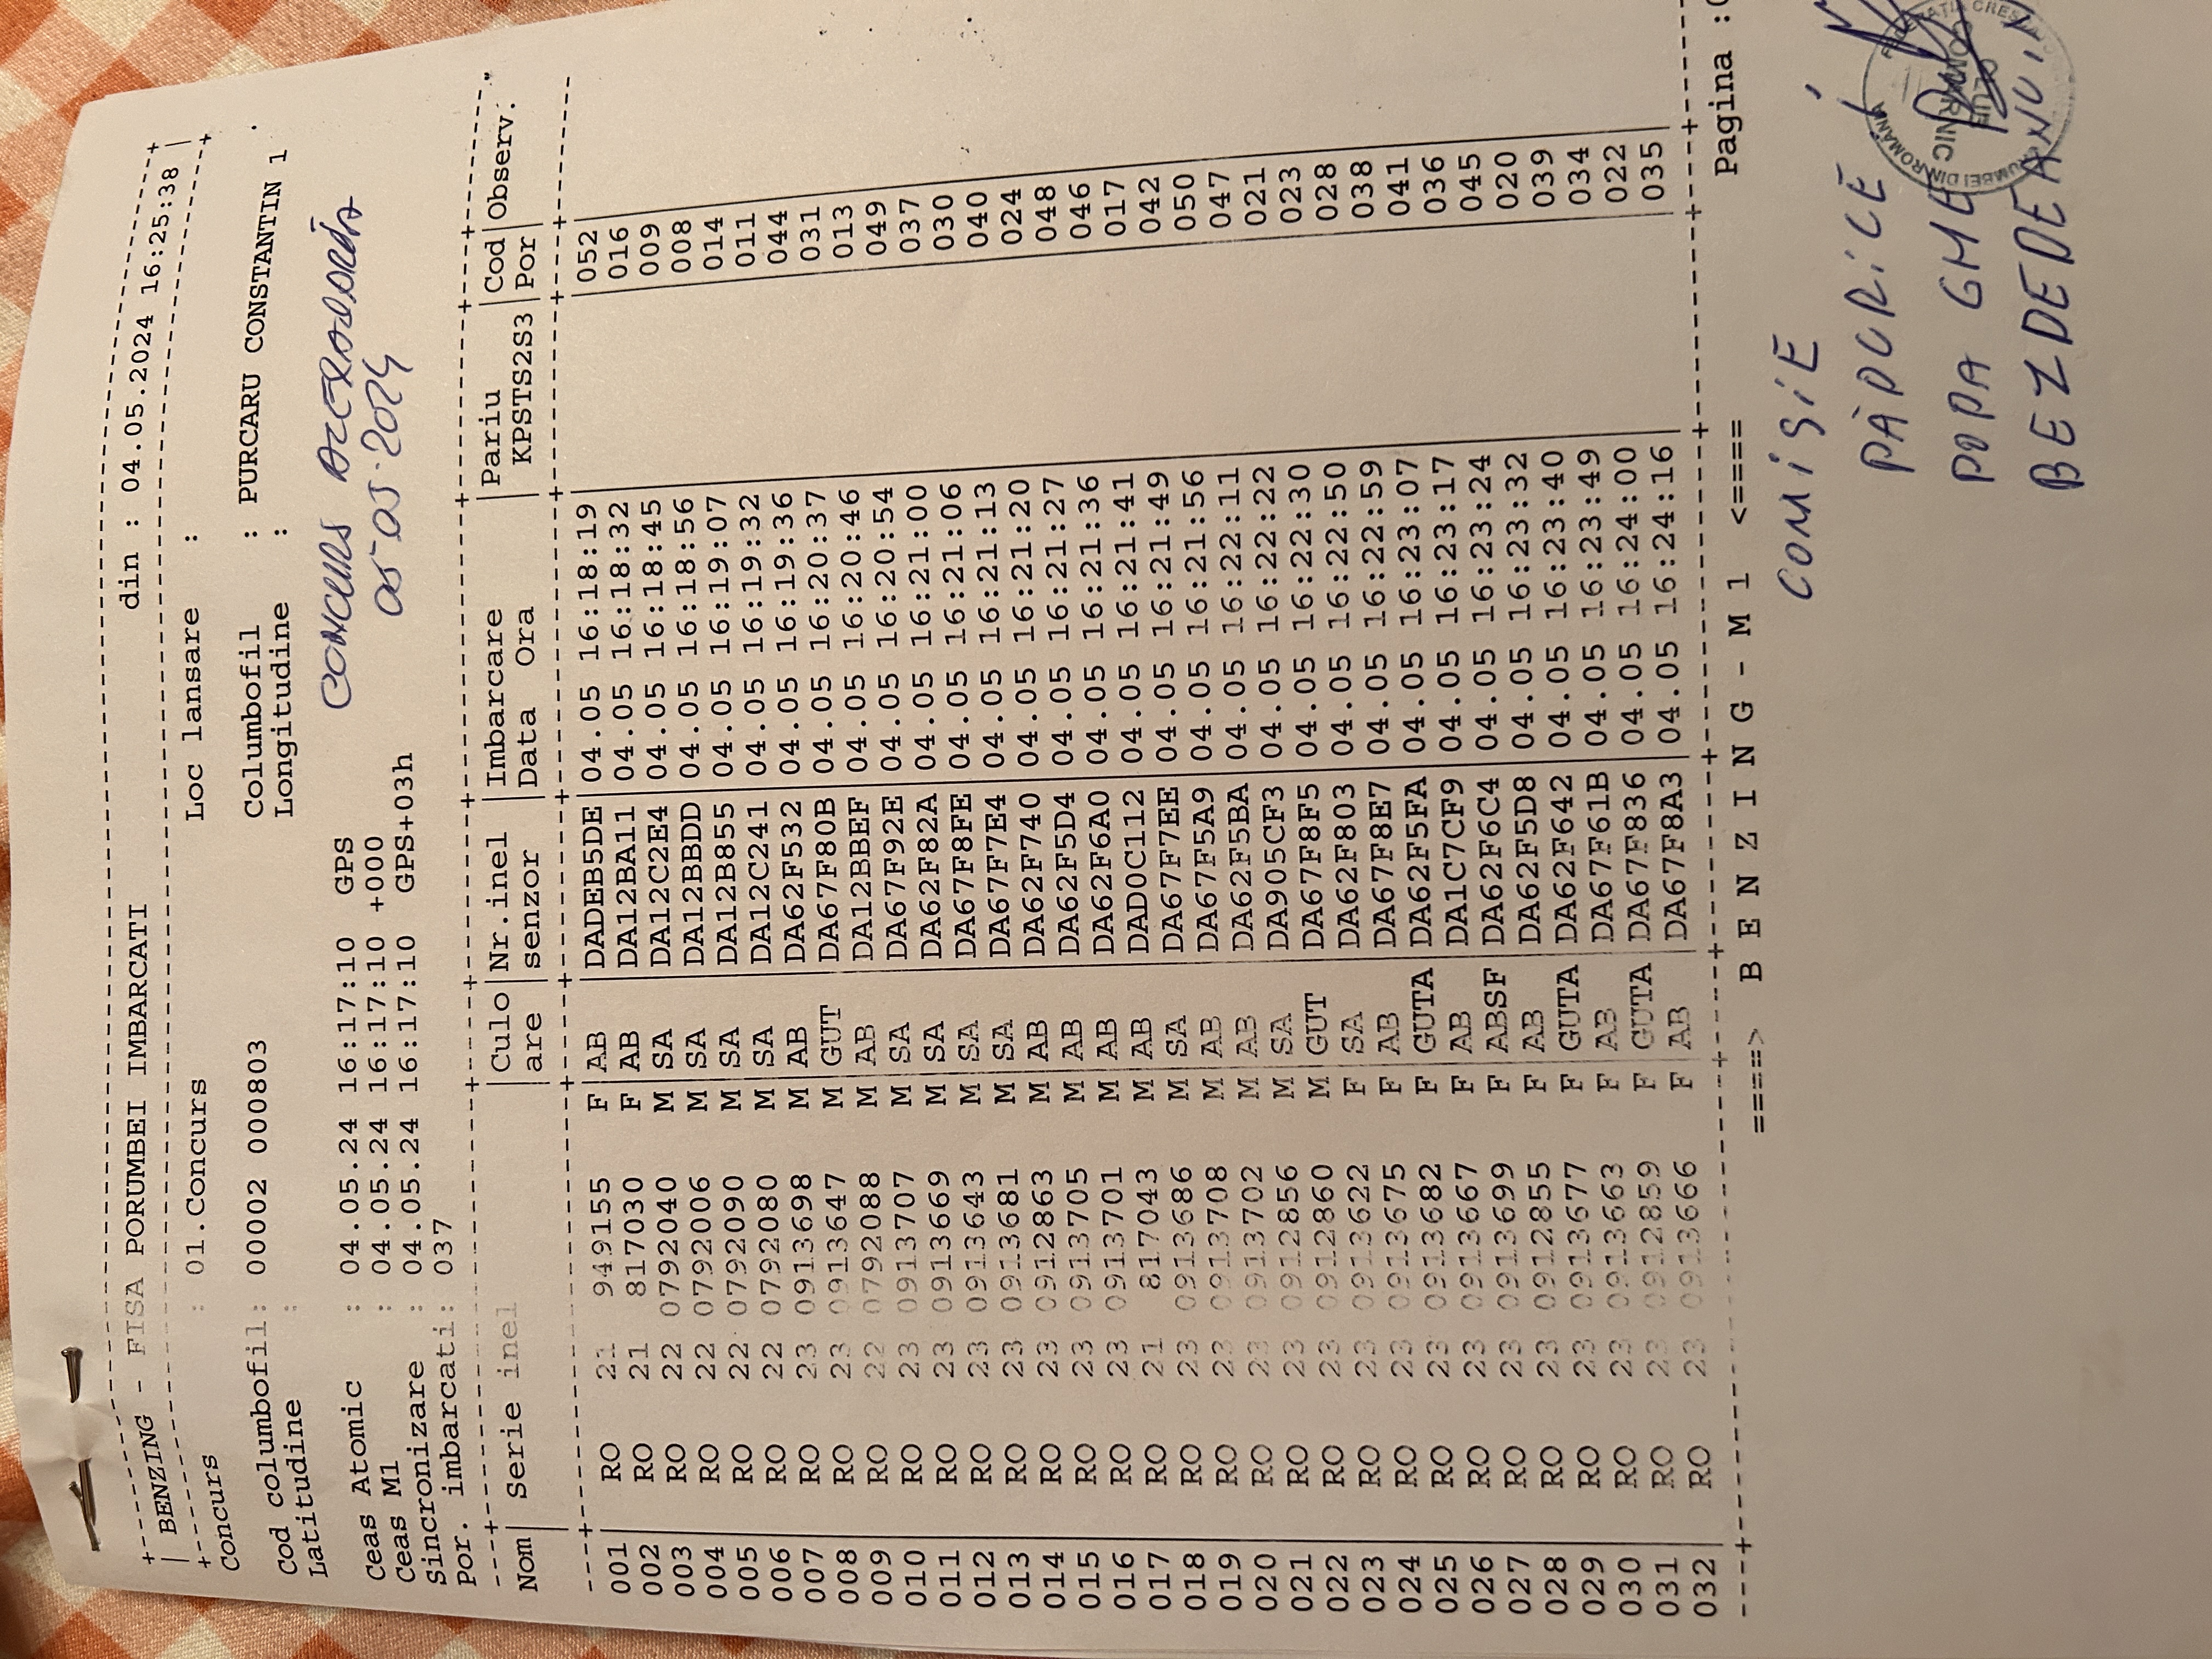 +---------------------------------------------------------------+
| BENZING - FISA PORUMBEI IMBARCATI din : 04.05.2024 16:25:38 |
+---------------------------------------------------------------+
Concurs : 01.Concurs Loc lansare :
Cod columbofil: 00002 000803 Columbofil : PURCARU CONSTANTIN 1
Latitudine : Longitudine :
CONCURS
05-05-2024
Ceas Atomic : 04.05.24 16:17:10 GPS
Ceas M1 : 04.05.24 16:17:10 +000
Sincronizare : 04.05.24 16:17:10 GPS+03h
Por. imbarcati: 037
Nom | Serie inel | Culo | Nr.inel | Imbarcare | Pariu | Cod | Observ.
are | senzor | Data Ora | KPSTS2S3 | Por |
001 RO 21 949155 F AB DADEB5DE 04.05 16:18:19 052
002 RO 21 817030 F AB DA12BA11 04.05 16:18:32 016
003 RO 22 0792040 M SA DA12C2E4 04.05 16:18:45 009
004 RO 22 0792006 M SA DA12BBDD 04.05 16:18:56 008
005 RO 22 0792090 M SA DA12B855 04.05 16:19:07 014
006 RO 22 0792080 M SA DA12C241 04.05 16:19:32 011
007 RO 23 0913698 M AB DA62F532 04.05 16:19:36 044
008 RO 23 0913647 M GUT DA67F80B 04.05 16:20:37 031
009 RO 22 0792088 M AB DA12BBEF 04.05 16:20:46 013
010 RO 23 0913707 M SA DA67F92E 04.05 16:20:54 049
011 RO 23 0913669 M SA DA62F82A 04.05 16:21:00 037
012 RO 23 0913643 M SA DA67F8FE 04.05 16:21:06 030
013 RO 23 0913681 M SA DA67F7E4 04.05 16:21:13 040
014 RO 23 0912863 M AB DA62F740 04.05 16:21:20 024
015 RO 23 0913705 M AB DA62F5D4 04.05 16:21:27 048
016 RO 23 0913701 M AB DA62F6A0 04.05 16:21:36 046
017 RO 21 817043 M AB DAD0C112 04.05 16:21:41 017
018 RO 23 0913686 M SA DA67F7EE 04.05 16:21:49 042
019 RO 23 0913708 M AB DA67F5A9 04.05 16:21:56 050
020 RO 23 0913702 M AB DA62F5BA 04.05 16:22:11 047
021 RO 23 0912856 M SA DA905CF3 04.05 16:22:22 021
022 RO 23 0912860 M GUT DA67F8F5 04.05 16:22:30 023
023 RO 23 0913622 F SA DA62F803 04.05 16:22:50 028
024 RO 23 0913675 F AB DA67F8E7 04.05 16:22:59 038
025 RO 23 0913682 F GUTA DA62F5FA 04.05 16:23:07 041
026 RO 23 0913667 F AB DA1C7CF9 04.05 16:23:17 036
027 RO 23 0913699 F ABSF DA62F6C4 04.05 16:23:24 045
028 RO 23 0912855 F AB DA62F5D8 04.05 16:23:32 020
029 RO 23 0913677 F GUTA DA62F642 04.05 16:23:40 039
030 RO 23 0913663 F AB DA67F61B 04.05 16:23:49 034
031 RO 23 0912859 F GUTA DA67F836 04.05 16:24:00 022
032 RO 23 0913666 F AB DA67F8A3 04.05 16:24:16 035
====> B E N Z I N G - M 1 <==== Pagina :
COMISIE
PĂDURICE
POPA GHE
BEZDEDEANU IN